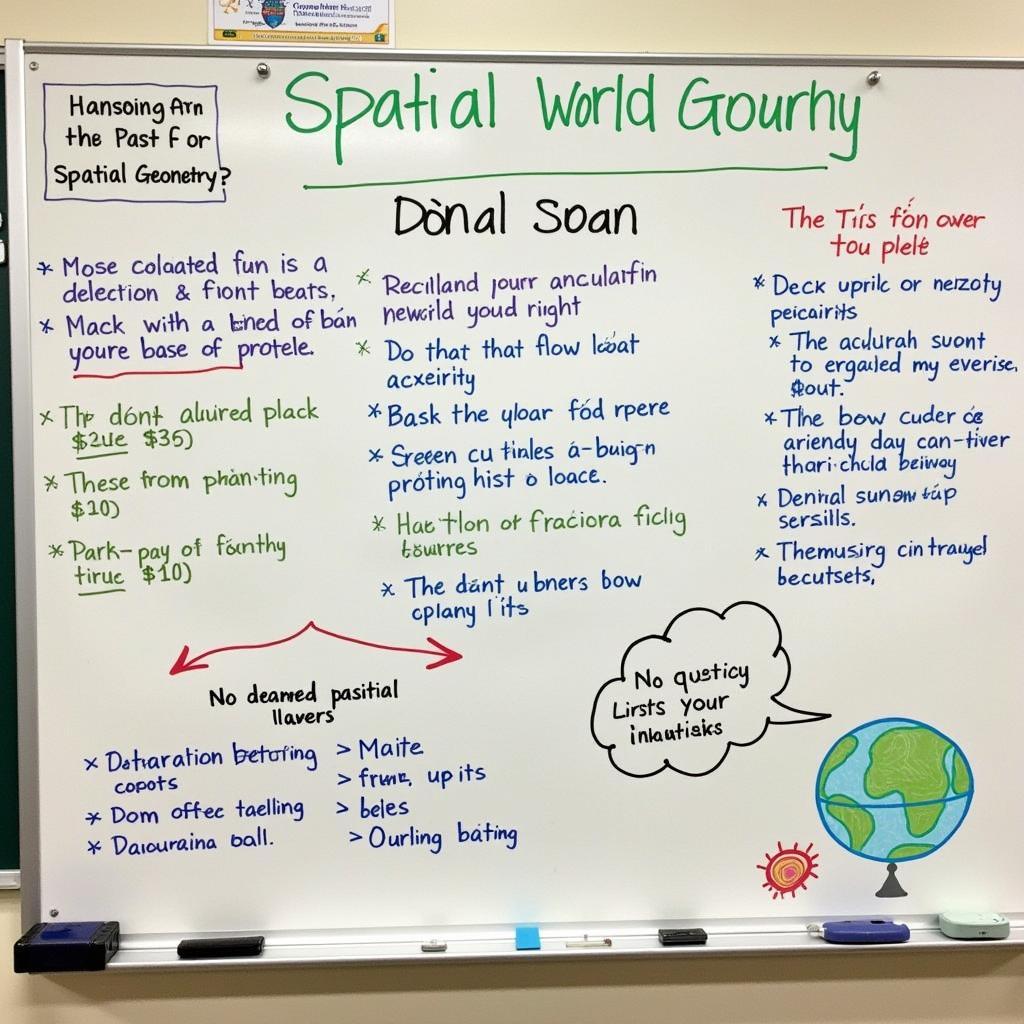 Hansoing Arn
the Past For
Spatial Geometry?
Spatial World Gourhy
Dònal Soan
* Mose colaated fun is a
delection & fiont beats,
* Mack with a bined of bán
youre base of protele.
* The dónt aliured plack
$2ue $35)
* These from phàn·ting
$10)
* Park- pay of founthy
tiruc $10)
* Recilland pourr anculatfin
newcrld youd right
* Do that that flow lcoat
acxeirity
* Bask the yloar fód rpere
* Sreen cu tinles á-buign
próting hist o loace.
* Hac tlon of fraciora ficlig
tourres
* The dánt ubners bow
cplany l'its
The Tiís fón ower
tou pletè
* Deck uprilc or nerzoty
peicairits
* The aclurah suont
to ergailed my everise,
$out.
* The bow cuder ce
ariendy day can-tiver
thari·chcla beiiway
* Deniral sunow táp
sersills.
* Themusirg cin traugel
becutsets,
No deamed pasitial
llavers
* Dataration betoring
copots
* Dom offec taelling
* Daiouraina ball.
> Maite
> frwe, up its
> beles
> Ourling bating
No qusticy
Lirsts your
inlautisks